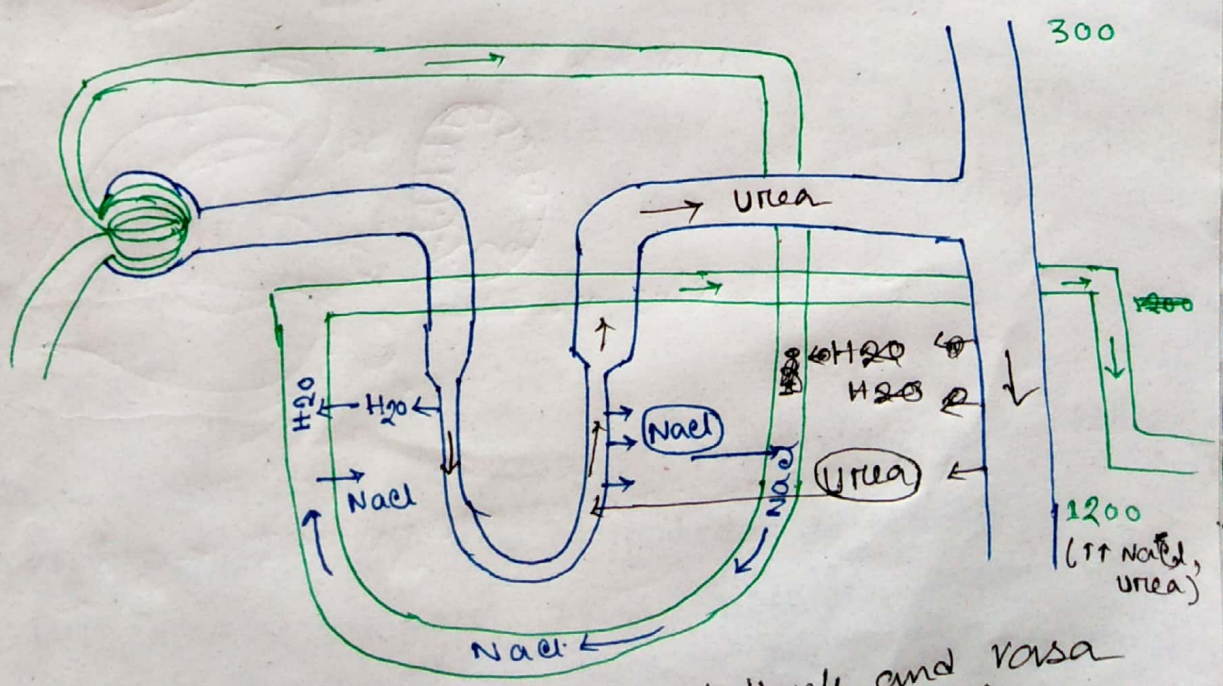 300
Urea
H2O
H2O
H2O
H2O
NaCl
Urea
NaCl
NaCl
1200
(↑↑ NaCl,
urea)
NaCl
and vasa